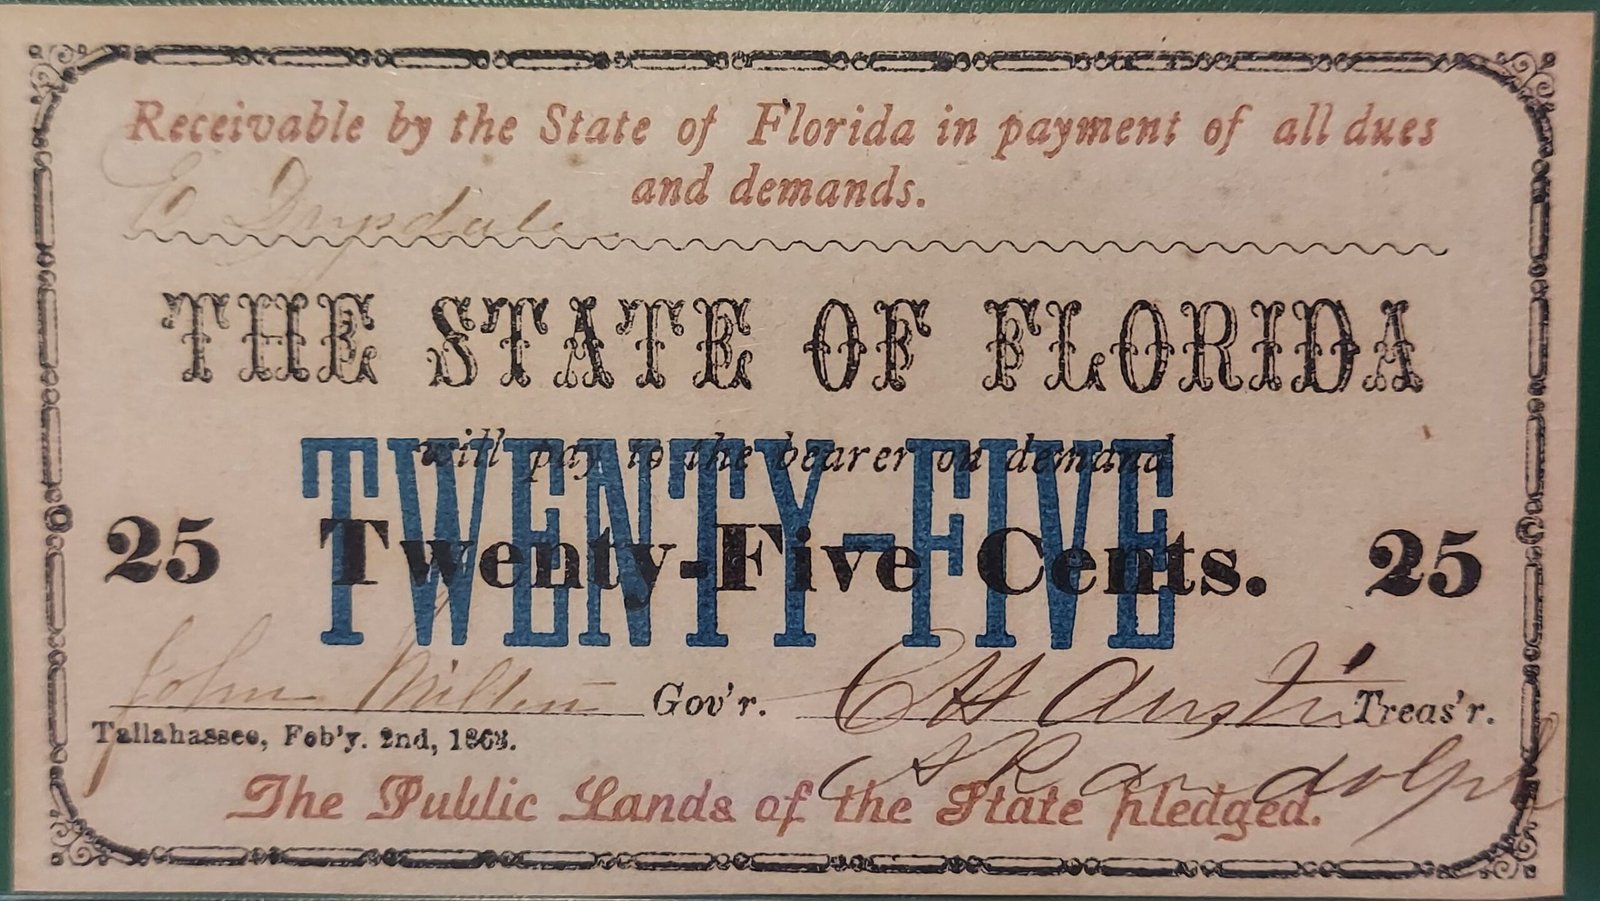 Receivable by the State of Florida in payment of all dues
and demands.
C. Drysdale
THE STATE OF FLORIDA
will pay to the bearer on demand
TWENTY-FIVE
25 Twenty-Five Cents. 25
John Milton Gov'r. C H Austin Treas'r.
Tallahassee, Feb'y. 2nd, 1863.
Randolph
The Public Lands of the State pledged.